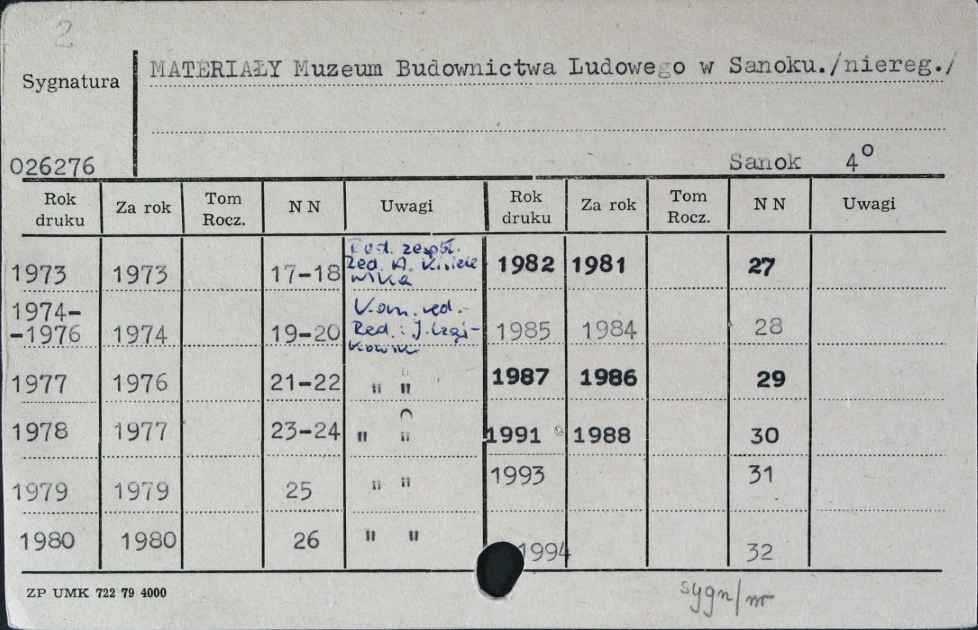 2
Sygnatura
MATERIAŁY Muzeum Budownictwa Ludowego w Sanoku./niereg./
026276
Sanok 4°
Rok druku Za rok Tom Rocz. N N Uwagi Rok druku Za rok Tom Rocz. N N Uwagi
1973 1973 17-18 Red. zesp. Red. A. 1982 1981 27
1974- -1976 1974 19-20 Kom. red.- Red.: J. Czaj- kowski 1985 1984 28
1977 1976 21-22 " " 1987 1986 29
1978 1977 23-24 " " 1991 1988 30
1979 1979 25 " " 1993 31
1980 1980 26 " " 1994 32
ZP UMK 722 79 4000
sygn/nr